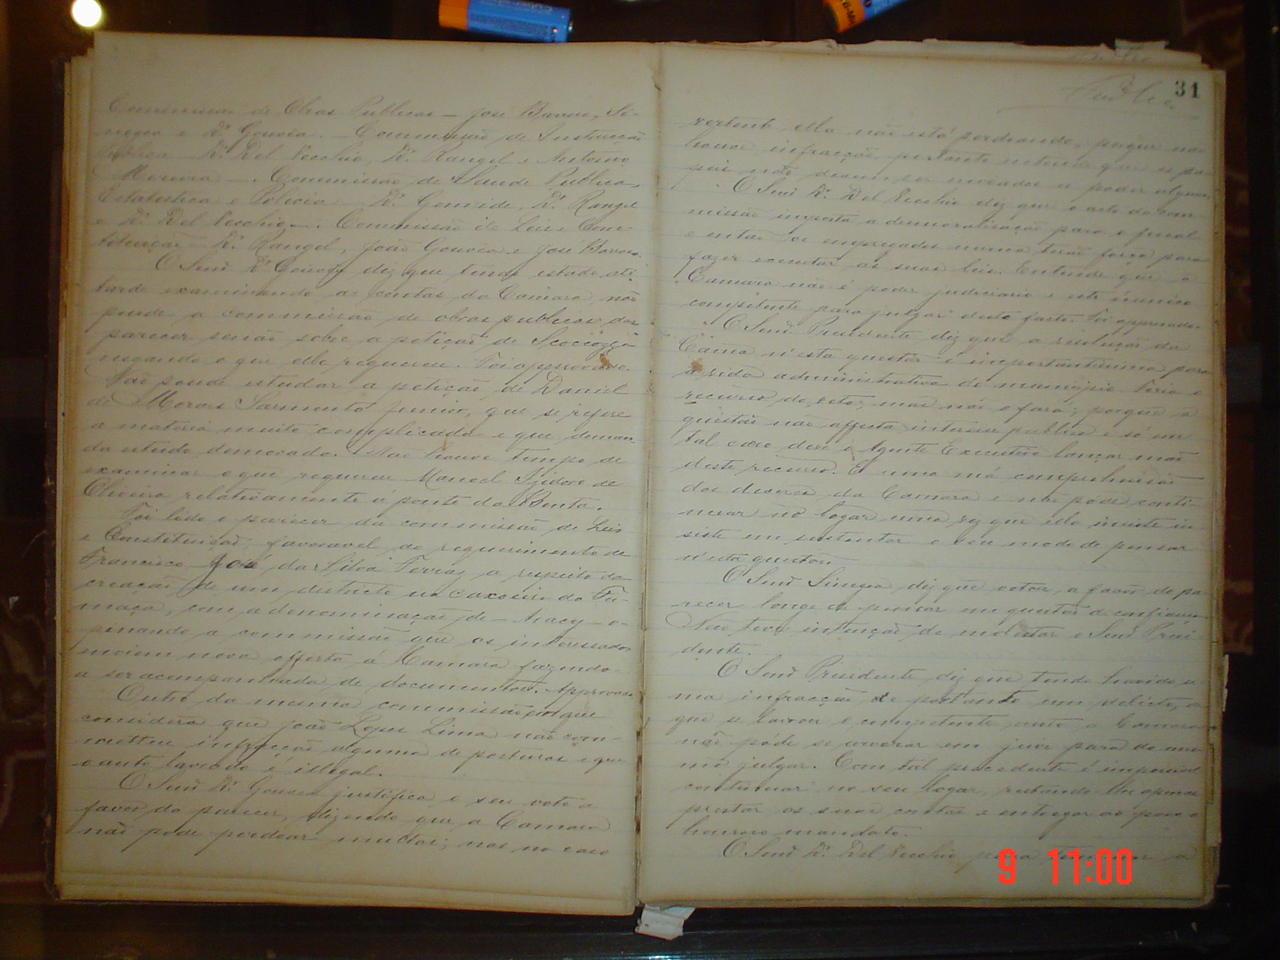 Commissão de Obras Publicas — José Bavoso, Si-
negra e Dr. Gouvêa. — Commissão de Instrucção
Publica — Dr. Del Vecchio, Dr. Rangel e Antonio
Moreira — Commissão de Saude Publica,
Estatistica e Policia — Dr. Rangel
e Dr. Del Vecchio. — Commissão de Leis e Cons-
tituição — Dr. Rangel, João Gouvêa e José Bavoso.
O Senr. Dr. Gouvêa diz que tendo estado até
tarde examinando as contas da Camara, não
pude a commissão de obras publicas dar
parecer senão sobre a petição de
negando o que elle requereu. Foi approvado.
Não poude estudar a petição de Daniel
de Moraes Sarmento Junior, que se refere
a materia muito complicada e que deman-
da estudo demorado. Não houve tempo de
examinar o que requereu Manoel Izidoro de
Oliveira relativamente á ponte do
Foi lido o parecer da commissão de Leis
e Constituição, favoravel ao requerimento de
Francisco José da Silva Ferraz a respeito da
creação de um districto na Caxoeira da Fu-
maça, com a denominação de — Aracy — o-
pinando a commissão que os interessados
enviem nova offerta á Camara fazendo-
a ser acompanhada de documentos. Approvado.
Outro da mesma commissão porque
considera que João Lopes Lima não com-
metteu infracção alguma de posturas e que
o auto lavrado é illegal.
O Senr. Dr. Gouvêa justifica o seu voto a
favor do parecer, dizendo que a Camara
não pode perdoar multas; mas no caso
31
vertente ella não está perdoando, porque não
houve infracção, portanto entende que os pa-
peis não devem ser enviados a poder algum.
O Senr. Dr. Del Vecchio diz que o acto da com-
missão importa a demoralisação para o fiscal
e então os empregados nunca terão força para
fazer executar as suas leis. Entende que a
Camara não é poder judiciario e este é unico
competente para julgar deste facto. Foi approvado.
O Senr. Presidente diz que a resolução da
Camara n'esta questão é importantissima para
a vida administrativa do municipio. Teria o
recurso do veto; mas não o fará, porque a
questão não affecta interesse publico e só em
tal caso deve o Agente Executivo lançar mão
deste recurso. É uma má comprehensão
dos deveres da Camara e não póde conti-
nuar no logar uma vez que ella insiste in-
siste em sustentar o seu modo de pensar
n'esta questão.
O Senr. Sinegra, diz que votou, a favor do pa-
recer longe de pensar em questão de confiança.
Não teve intenção de molestar o Senr. Presi-
dente.
O Senr. Presidente diz que tendo havido u-
ma infracção, e portanto um delicto, do
que se lavrou o competente auto a Camara
não póde se arvorar em juiz para do mes-
mo julgar. Com tal precedente é impossivel
continuar no seu logar, restando-lhe apenas
prestar as suas contas e entregar ao povo o
honroso mandato.
O Senr. Dr. Del Vecchio
9 11:00